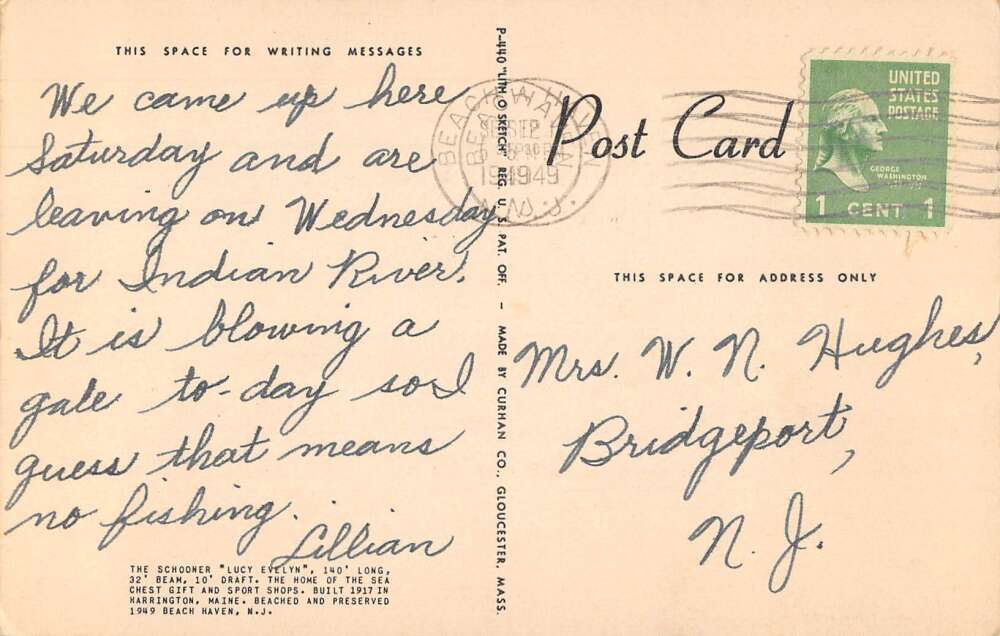 THIS SPACE FOR WRITING MESSAGES
We came up here
Saturday and are
leaving on Wednesday
for Indian River.
It is blowing a
gale to-day so I
guess that means
no fishing.
Lillian
THE SCHOONER "LUCY EVELYN", 140' LONG,
32' BEAM, 10' DRAFT. THE HOME OF THE SEA
CHEST GIFT AND SPORT SHOPS. BUILT 1917 IN
HARRINGTON, MAINE. BEACHED AND PRESERVED
1949 BEACH HAVEN, N.J.
P-440 "LITH-O-SKETCH" REG. U.S. PAT. OFF. - MADE BY CURHAN CO., GLOUCESTER, MASS.
BEACH HAVEN
SEP
1949
N.J.
Post Card
UNITED
STATES
POSTAGE
GEORGE
WASHINGTON
1 CENT 1
THIS SPACE FOR ADDRESS ONLY
Mrs. W. N. Hughes,
Bridgeport,
N. J.